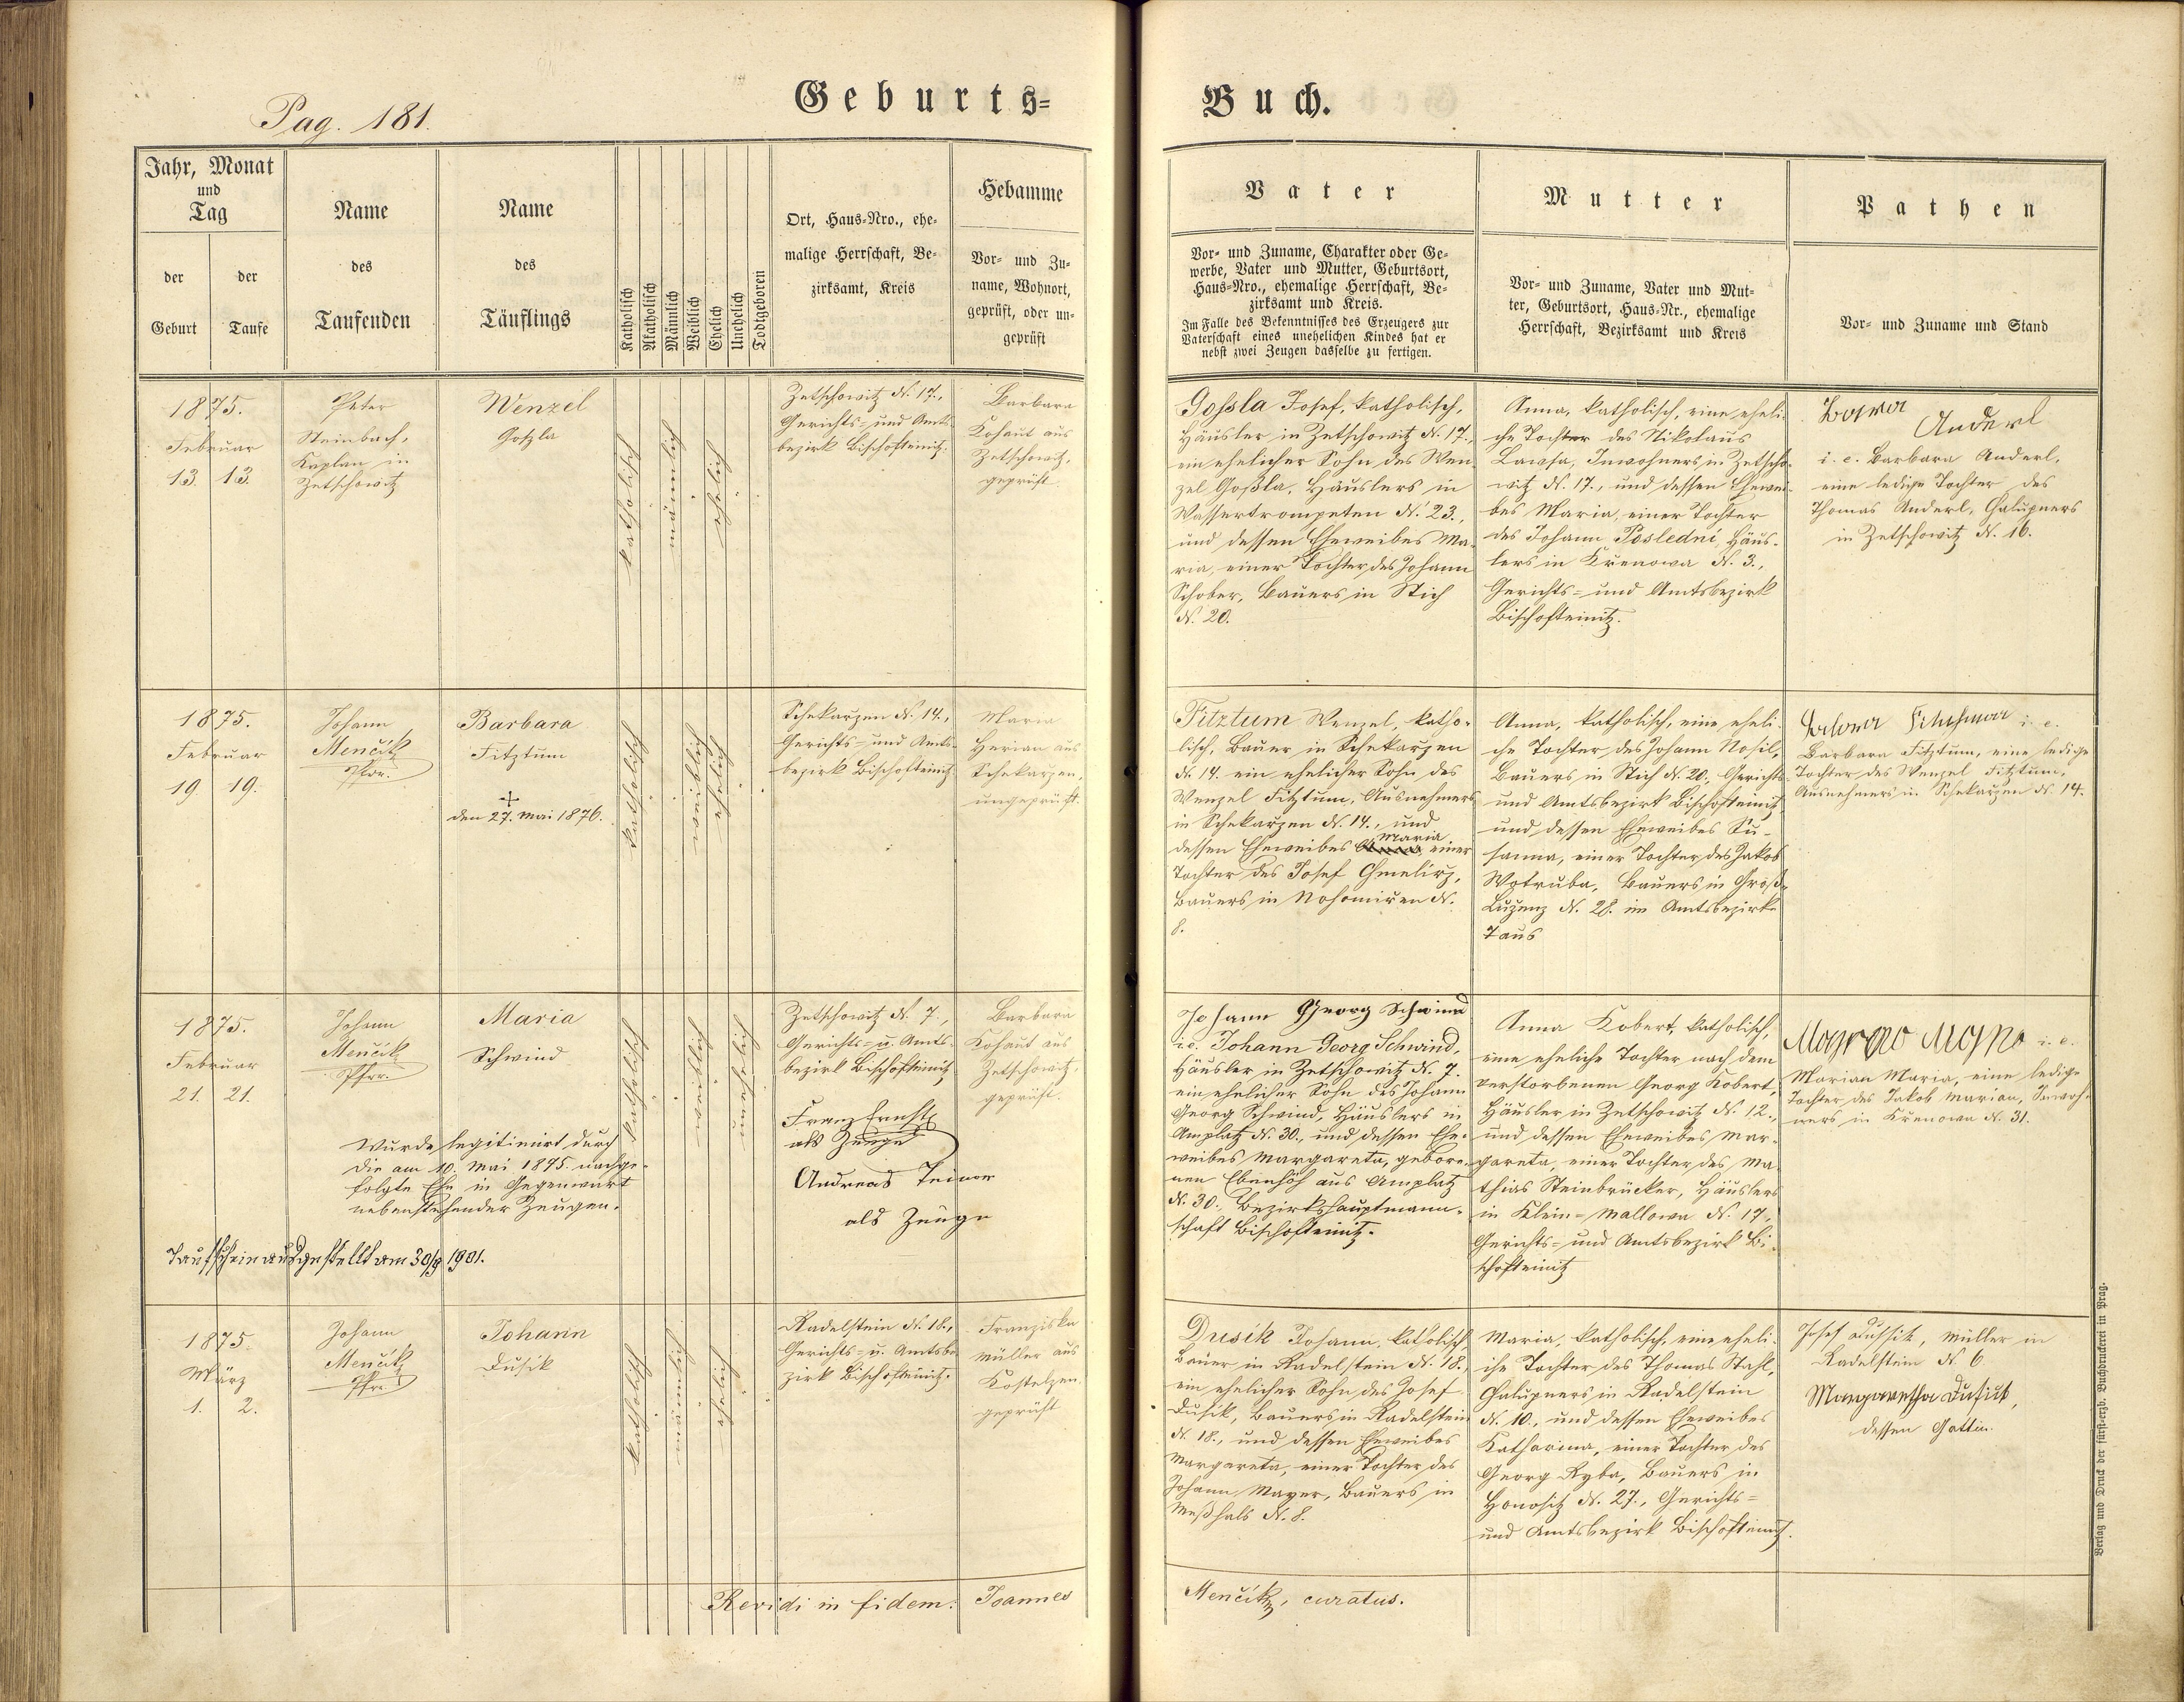 Pag. 181.
Geburts-
Buch.
Jahr, Monat
und
Tag
der
Geburt
der
Taufe
Name
des
Taufenden
Name
des
Täuflings
Katholisch
Akatholisch
Männlich
Weiblich
Ehelich
Unehelich
Todtgeboren
Ort, Haus-Nro., ehe-
malige Herrschaft, Be-
zirksamt, Kreis
Hebamme
Vor- und Zu-
name, Wohnort,
geprüft, oder un-
geprüft
Vater
Vor- und Zuname, Charakter oder Ge-
werbe, Vater und Mutter, Geburtsort,
Haus-Nro., ehemalige Herrschaft, Be-
zirksamt und Kreis.
Im Falle des Bekenntnisses des Erzeugers zur
Vaterschaft eines unehelichen Kindes hat er
nebst zwei Zeugen dasselbe zu fertigen.
Mutter
Vor- und Zuname, Vater und Mut-
ter, Geburtsort, Haus-Nr., ehemalige
Herrschaft, Bezirksamt und Kreis
Pathen
Vor- und Zuname und Stand
1875.
Februar
13. 13.
Peter
Steinbach,
Kaplan in
Zetschowitz
Wenzel
Goßla
katholisch
männlich
ehelich
Zetschowitz N. 17.,
Gerichts- und Amts-
bezirk Bischofteinitz.
Barbara
Kohaut aus
Zetschowitz,
geprüft.
Gossla Josef, katholisch,
Häusler in Zetschowitz N. 17.,
ein ehelicher Sohn des Wen-
zel Goßla, Häuslers in
Wassertrompeten N. 23.,
und dessen Eheweibes Ma-
ria, einer Tochter des Johann
Schober, Bauers in Stich
N. 20.
Anna, katholisch, eine eheli-
che Tochter des Nikolaus
Lawsa, Inwohners in Zetscho-
witz N. 17., und dessen Ehewei-
bes Maria, einer Tochter
des Johann Poslední, Häus-
lers in Křenowa N. 3.,
Gerichts- und Amtsbezirk
Bischofteinitz.
Anderl
i. e. Barbara Anderl,
eine ledige Tochter des
Thomas Anderl, Chalupners
in Zetschowitz N. 16.
1875.
Februar
19. 19.
Johann
Menčík
Pfrr.
Barbara
Fitztum
+
den 27. Mai 1876.
katholisch
weiblich
ehelich
Schekarzen N. 14.,
Gerichts- und Amts-
bezirk Bischofteinitz
Maria
Herian aus
Schekarzen,
ungeprüft.
Fitztum Wenzel, katho-
lisch, Bauer in Schekarzen
N. 14. ein ehelicher Sohn des
Wenzel Fitztum, Ausnehmers
in Schekarzen N. 14., und
Maria
dessen Eheweibes Anna einer
Tochter des Josef Chmelirz,
Bauers in Nahomiren N.
8.
Anna, katholisch, eine eheli-
che Tochter des Johann Nosil,
Bauers in Stich N. 20., Gerichts-
und Amtsbezirk Bischofteinitz,
und dessen Eheweibes Su-
sanna, einer Tochter des Jakob
Wotruba, Bauers in Groß-
Luzenz N. 28. im Amtsbezirke
Taus
i. e.
Barbara Fitztum, eine ledige
Tochter des Wenzel Fitztum,
Ausnehmers in Schekarzen N. 14.
1875.
Februar
21. 21.
Johann
Menčík
Pfrr.
Maria
Schwind
katholisch
weiblich
unehelich
Zetschowitz N. 7.,
Gerichts- u. Amts-
bezirk Bischofteinitz
Barbara
Kohaut aus
Zetschowitz,
geprüft.
Franz Ernst
als Zeuge
Andreas Teiner
als Zeuge
Wurde legitimirt durch
die am 10. Mai 1875. nachge-
folgte Ehe in Gegenwart
nebenstehender Zeugen.
Taufschein ausgestellt am 30/9 1901.
Johann Georg Schwind
i. e. Johann Georg Schwind,
Häusler in Zetschowitz N. 7.
ein ehelicher Sohn des Johann
Georg Schwind, Häuslers in
Amplatz N. 30., und dessen Ehe-
weibes Margareta, gebore-
nen Ebenhöh aus Amplatz
N. 30., Bezirkshauptmann-
schaft Bischofteinitz.
Anna Kobert, katholisch,
eine eheliche Tochter nach dem
verstorbenen Georg Kobert,
Häusler in Zetschowitz N. 12.,
und dessen Eheweibes Mar-
gareta, einer Tochter des Ma-
thias Steinbrücker, Häuslers
in Klein-Mallowa N. 17.,
Gerichts- und Amtsbezirk Bi-
schofteinitz
i. e.
Marian Maria, eine ledige
Tochter des Jakob Marian, Inwoh-
ners in Křenowa N. 31.
1875.
März
1. 2.
Johann
Menčík
Pfrr.
Johann
Dusik
katholisch
männlich
ehelich
Radelstein N. 18.,
Gerichts- u. Amtsbe-
zirk Bischofteinitz.
Franziska
Müller aus
Kostelzen
geprüft
Dusík Johann, katholisch,
Bauer in Radelstein N. 18.,
ein ehelicher Sohn des Josef
Dusik, Bauers in Radelstein
N. 18., und dessen Eheweibes
Margareta, einer Tochter des
Johann Mayer, Bauers in
Meßhals N. 8.
Maria, katholisch, eine eheli-
che Tochter des Thomas Stahl,
Chalupners in Radelstein
N. 10., und dessen Eheweibes
Katharina, einer Tochter des
Georg Ryba, Bauers in
Honositz N. 27., Gerichts-
und Amtsbezirk Bischofteinitz.
Josef Dussik, Müller in
Radelstein N. 6
Margaretha Dusick,
dessen Gattin.
Revidi in fidem: Joannes
Menčík, curatus.
Verlag und Druck der fürst-erzb. Buchdruckerei in Prag.